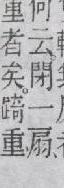 何云。閉一扇、
重者矣。踦重